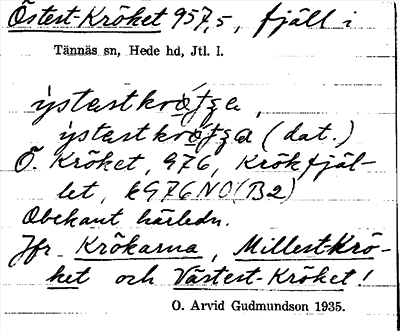 Östest-Kröket 957,5, fjäll i
Tännäs sn, Hede hd, Jtl. l.
Ö. Kröket, 976, Krökfjäl-
let, k976NO(B2)
Obekant härledn.
Jfr Krökarna, Millest-Krö-
ket och Västest-Kröket!
O. Arvid Gudmundson 1935.